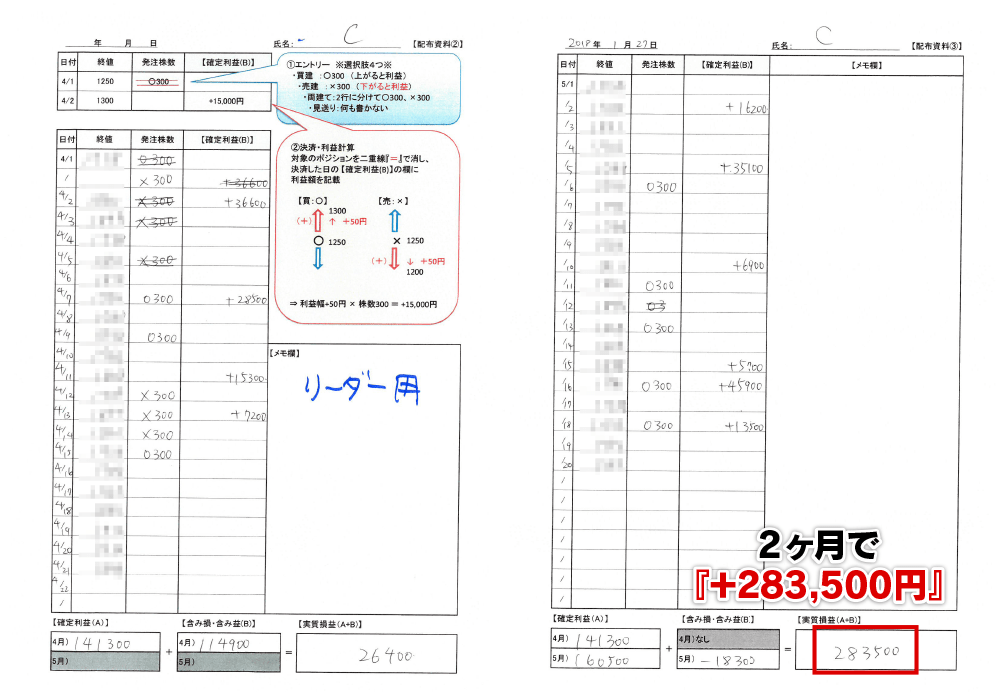 年 月 日
氏名: C
【配布資料②】
日付 終値 発注株数 【確定利益(B)】
4/1 1250 〇300
4/2 1300 +15,000円
①エントリー ※選択肢4つ※
・買建 :〇300 (上がると利益)
・売建 :×300 (下がると利益)
・両建て:2行に分けて〇300、×300
・見送り:何も書かない
②決済・利益計算
対象のポジションを二重線『=』で消し、
決済した日の【確定利益(B)】の欄に
利益額を記載
【買:〇】 【売:×】
1300
(+) ↑ +50円
〇 1250 × 1250
(+) ↓ +50円
1200
⇒ 利益幅+50円 × 株数300 = +15,000円
日付 終値 発注株数 【確定利益(B)】
4/1 〇300
/ ×300 +36600
4/2 ×300 +36600
4/3 ×300
4/4
4/5 ×300
4/6
4/7 〇300 +28500
4/8
4/9 〇300
4/10
4/11 +15300
4/12 ×300
4/13 ×300 +7200
4/14 ×300
4/15 〇300
4/16
4/17
4/18
4/19
4/20
4/21
4/22
/
【メモ欄】
リーダー用
【確定利益(A)】 【含み損・含み益(B)】 【実質損益(A+B)】
4月) 141300 + 4月) 114900 = 26400
5月) 5月)
2018年 1月 27日
氏名: C
【配布資料③】
日付 終値 発注株数 【確定利益(B)】 【メモ欄】
5/1
/2 +16200
/3
/4
/5 +35100
/6 〇300
/7
/8
/9
/10 +6900
/11 〇300
/12 〇3
/13 〇300
/14
/15 +5700
/16 〇300 +45900
/17
/18 〇300 +13500
/19
/20
/
/
/
/
/
/
/
2ヶ月で
『+283,500円』
【確定利益(A)】 【含み損・含み益(B)】 【実質損益(A+B)】
4月) 141300 + 4月)なし = 283500
5月) 160500 5月) -18300